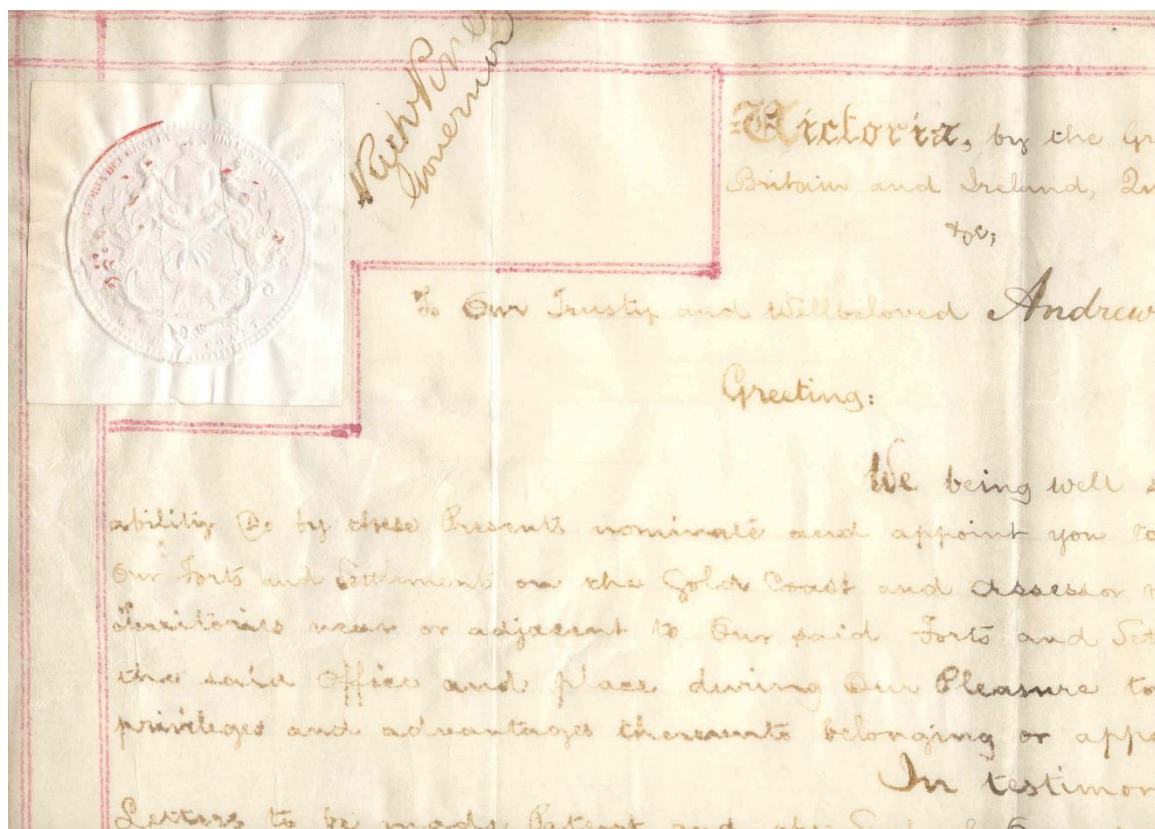 Governor
Victoria, by the Gr
Britain and Ireland, Qu
&c;
To Our Trusty and Wellbeloved Andrew
Greeting:
We being well s
ability Do by these Presents nominate and appoint you to
Our Forts and Settlements on the Gold Coast and Assessor
Territories near or adjacent to Our said Forts and Set
the said Office and place during Our Pleasure to
privileges and advantages thereunto belonging or appe
In testimon
Letters to be made Patent and the Seal of